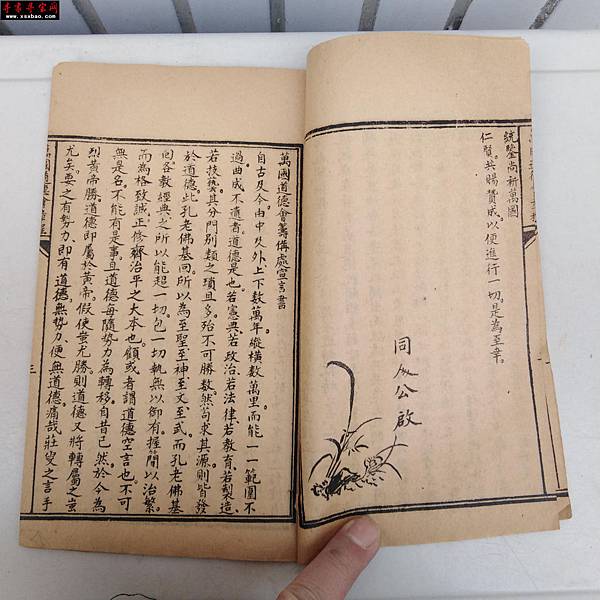 寻宝寻宝网
www.xsxbao.com
統鑒尚祈萬國
仁賢共賜贊成。以便進行一切。是為至幸。
同人公啟
萬國道德會籌備處宣言書
自古及今由中及外上下數萬年。縱橫數萬里。而能一一範圍不
過曲成不遺者。道德是也。若憲典。若政治。若法律。若教育。若製造。
若技藝。其分門別類之瑣且多。殆不可勝數。然苟求其源則皆發
於道德。此孔老佛基回。所以為至聖至神至文至武。而孔老佛基
回各教經典之所以能超一切包一切執無以御有。握簡以治繁。
而為格致誠正修齊治平之大本也。顧或者謂道德空言也。不可
無是名。不能有是事。且道德每隨勢力為轉移。自昔已然。於今為
烈。黃帝勝。道德即屬於黃帝。假使蚩尤勝。則道德又將轉屬之蚩
尤矣。要之有勢力。即有道德。無勢力。便無道德。痛哉莊叟之言乎
三